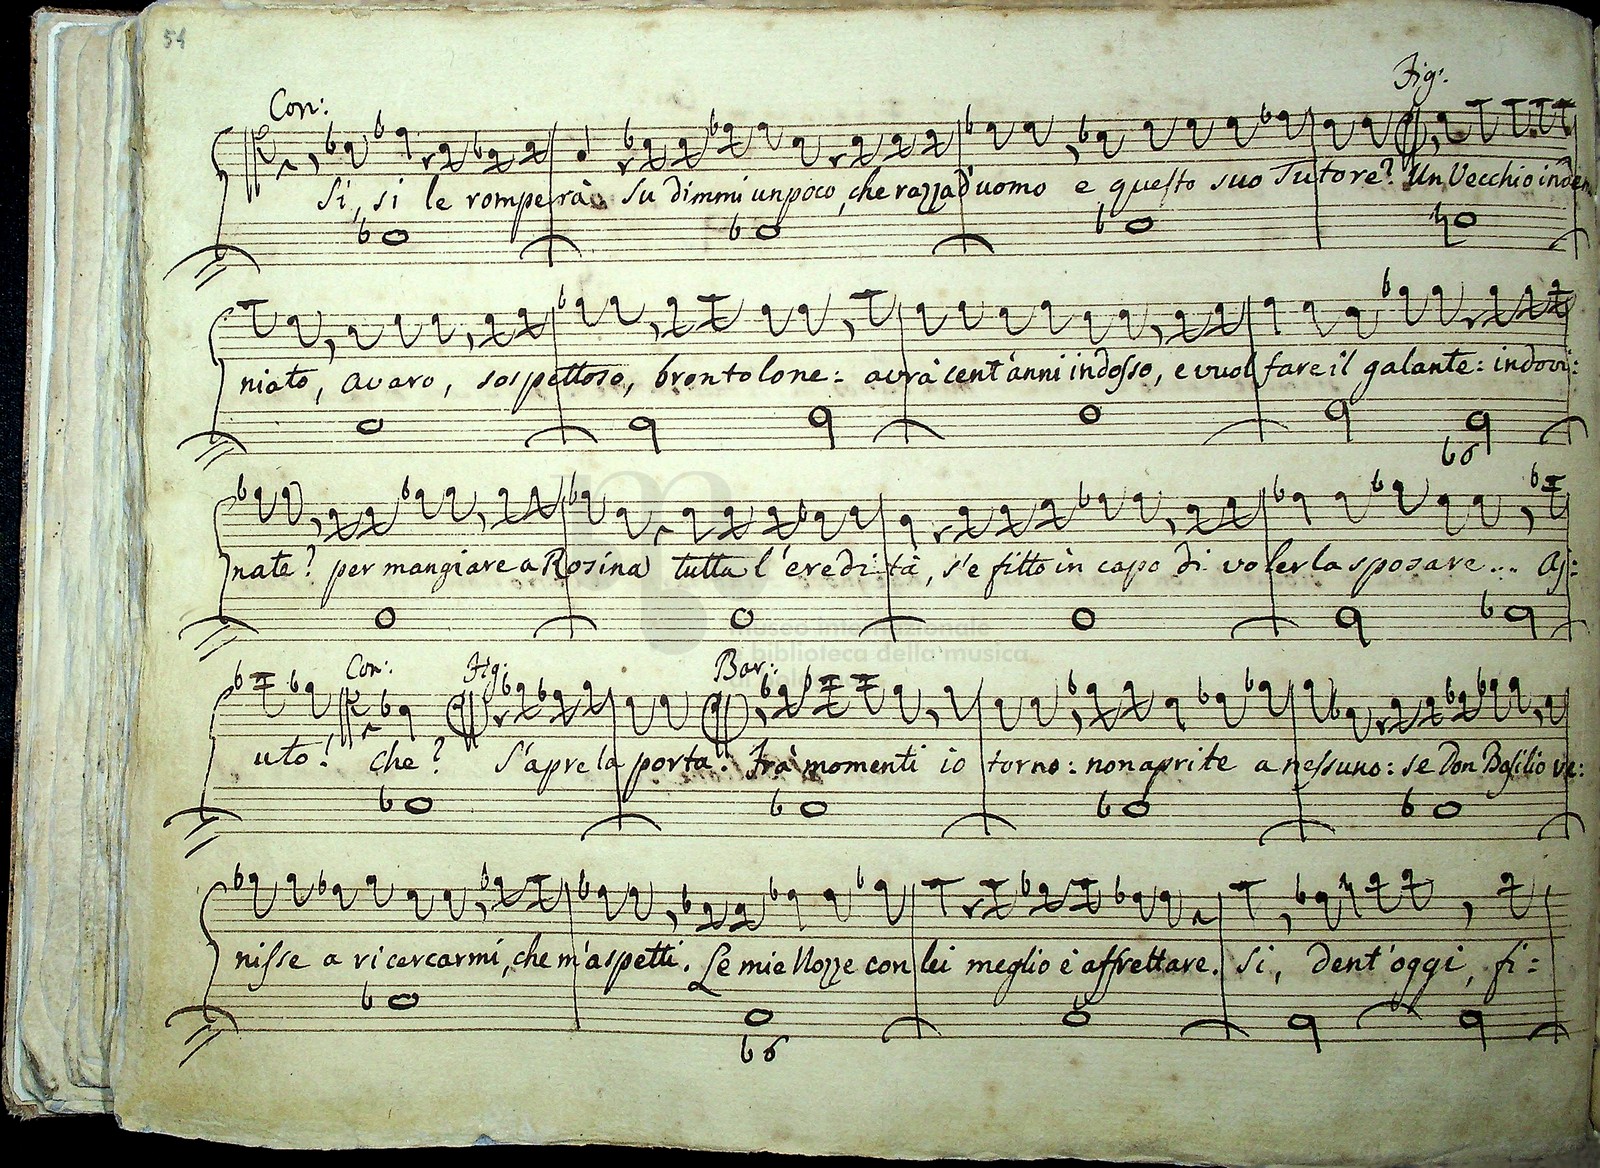 54
Con:
Fig:
Si, si le romperà. Su dimmi un poco, che razza d'uomo e questo suo Tutore? Un Vecchio indem
niato, avaro, sospettoso, brontolone: avrà cent'anni indosso, e vuol fare il galante: indovi:
b6
nate? per mangiare a Rosina tutta l'eredità, s'e fitto in capo di volerla sposare... Aj:
museo internazionale
biblioteca della musica
Con: Fig: Bar:
uto! che? S'apre la porta. Frà momenti io torno: non aprite a nessuno: se Don Basilio ve:
nisse a ricercarmi, che m'aspetti. Le mie Nozze con lei meglio è affrettare. Si, dent'oggi, fi=
b6